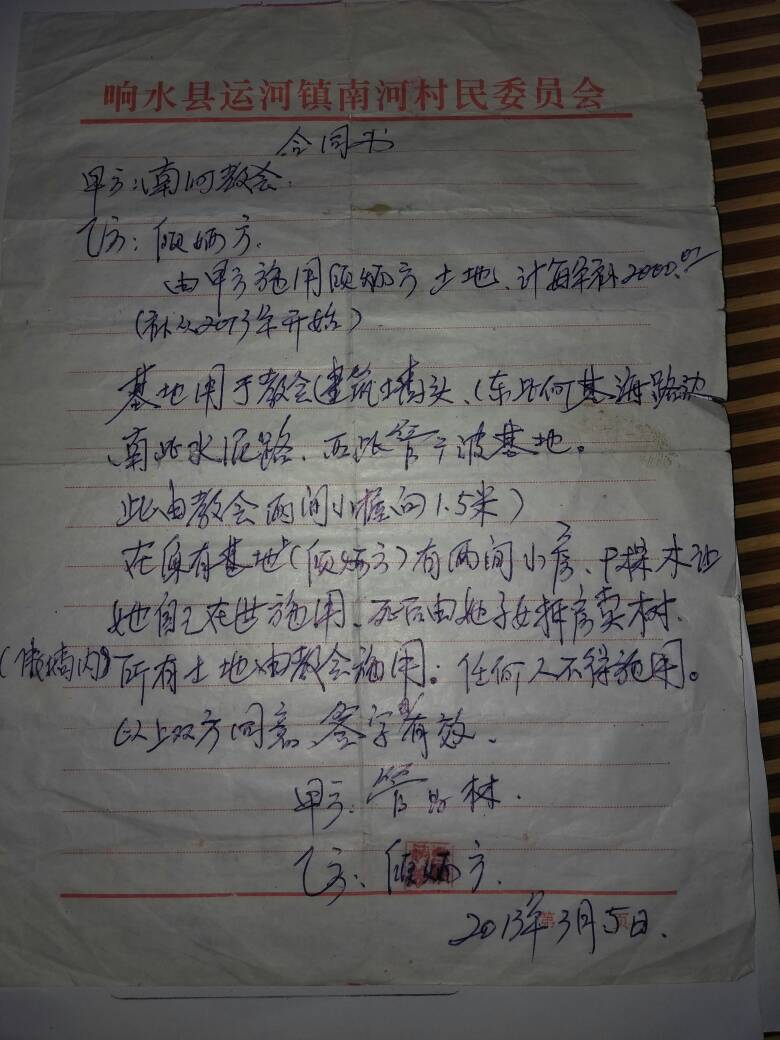 响水县运河镇南河村民委员会
合同书
甲方:南河教会.
乙方:倾炳方.
由甲方施用倾炳方土地、计每年补2000.00
(补从2013年开始)
基地用于教会建筑墙头、(东北何基海路边
南北水泥路、西北管于波基地。
北由教会两间小屋向1.5米)
在原有基地(倾炳方)有两间小房、树木让
她自己在世施用、死后由她子女拆房卖树.
(墙内)所有土地由教会施用。任何人不得施用。
以上双方同意、签字有效、
甲方:管 林.
乙方:倾炳方.
第 页
2013年3月5日.